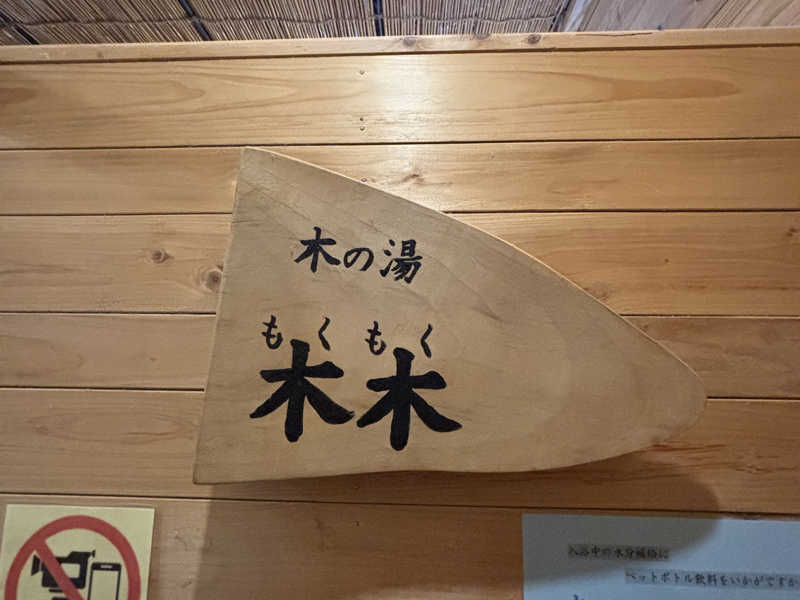 木の湯
もくもく
木木
入浴中の水分補給に
ペットボトル飲料をいかがですか